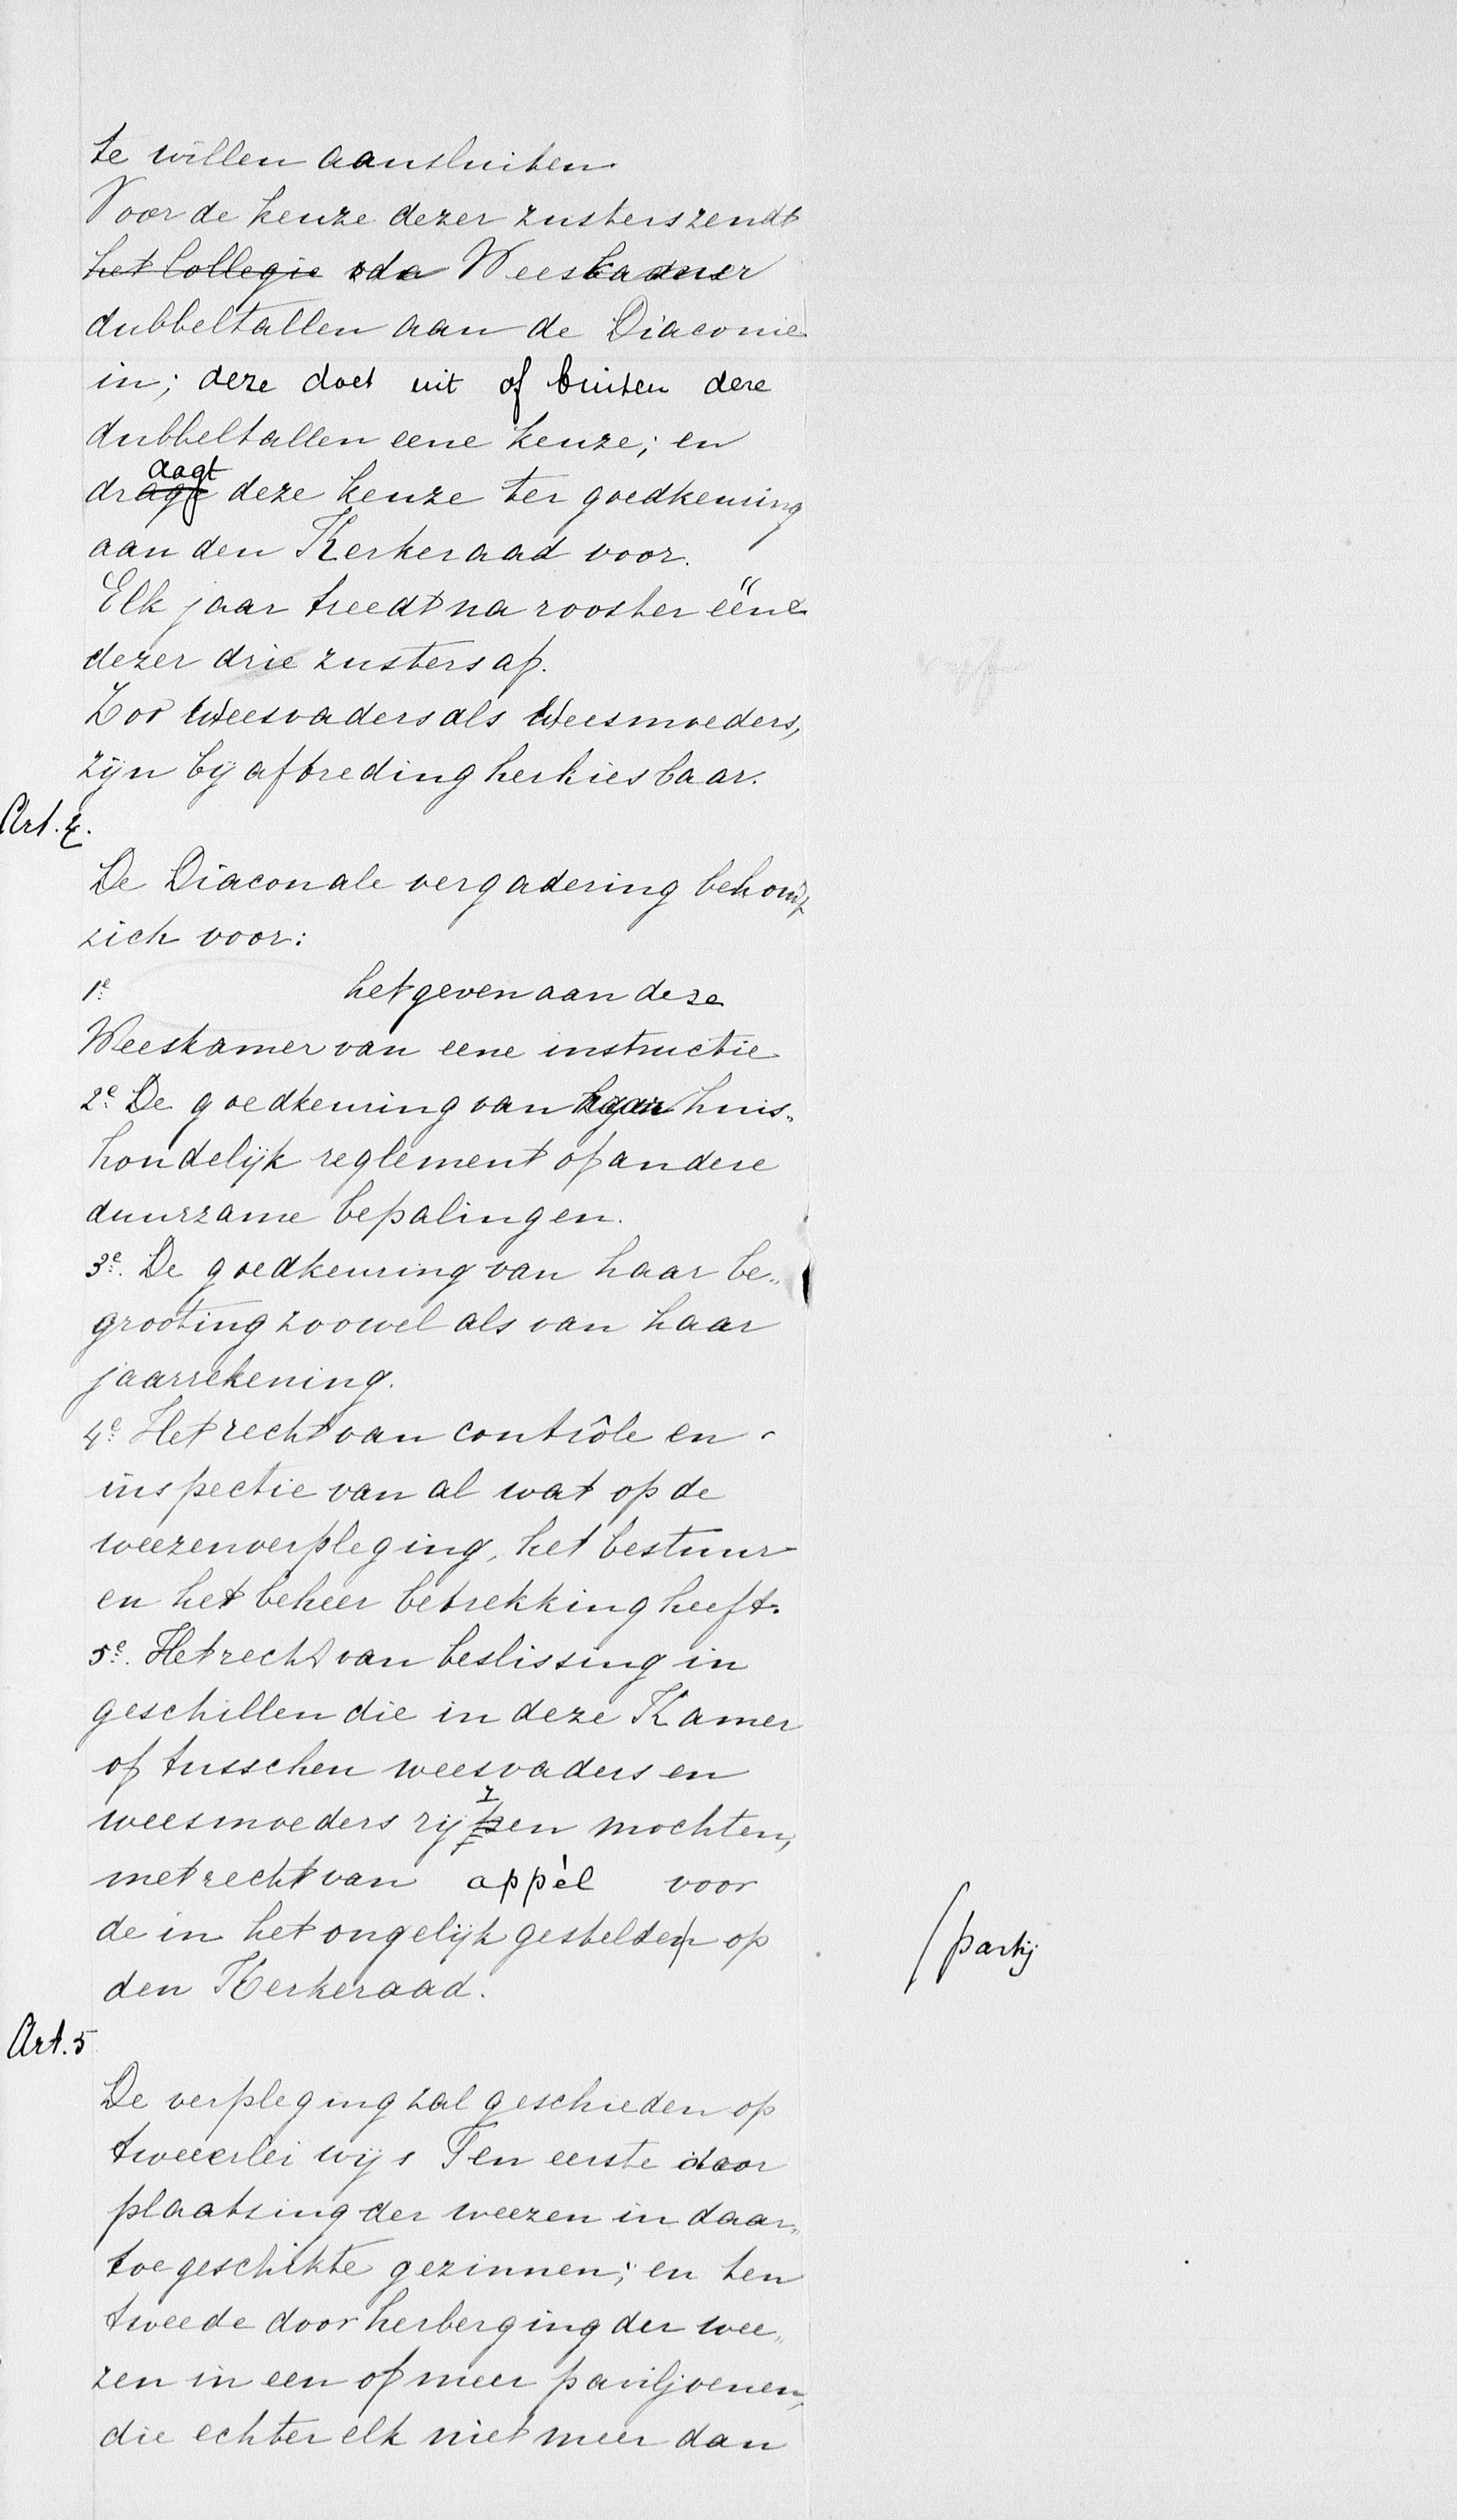 te willen aansluiten.
Voor de keuze dezer zusters zendt
het Collegie de Weeskamer
dubbeltallen aan de Diaconie
in; deze doet uit of buiten deze
dubbeltallen eene keuze; en
draagt deze keuze ter goedkeuring
aan den Kerkeraad voor.
Elk jaar treedt na rooster ééne
dezer drie zusters af.
Zoo Weesvaders als Weesmoeders,
zijn bij aftreding herkiesbaar.
Art. 4.
De Diaconale vergadering behoudt
zich voor:
1e. het geven aan deze
Weeskamer van eene instructie
2e. De goedkeuring van haar huis„
houdelijk reglement of andere
duurzame bepalingen.
3e. De goedkeuring van haar be„
grooting zoowel als van haar
jaarrekening.
4e. Het recht van contrôle en
inspectie van al wat op de
weezenverpleging, het bestuur
en het beheer betrekking heeft.
5e. Het recht van beslissing in
geschillen die in deze Kamer
of tusschen weesvaders en
weesmoeders rijzen mochten,
met recht van appèl voor
de in het ongelijk gestelde op
/partij
den Kerkeraad.
Art. 5
De verpleging zal geschieden op
tweeerlei wijs Ten eerste door
plaatsing der weezen in daar„
toe geschikte gezinnen; en ten
tweede door herberging der wee„
zen in een of meer paviljoenen,
die echter elk niet meer dan